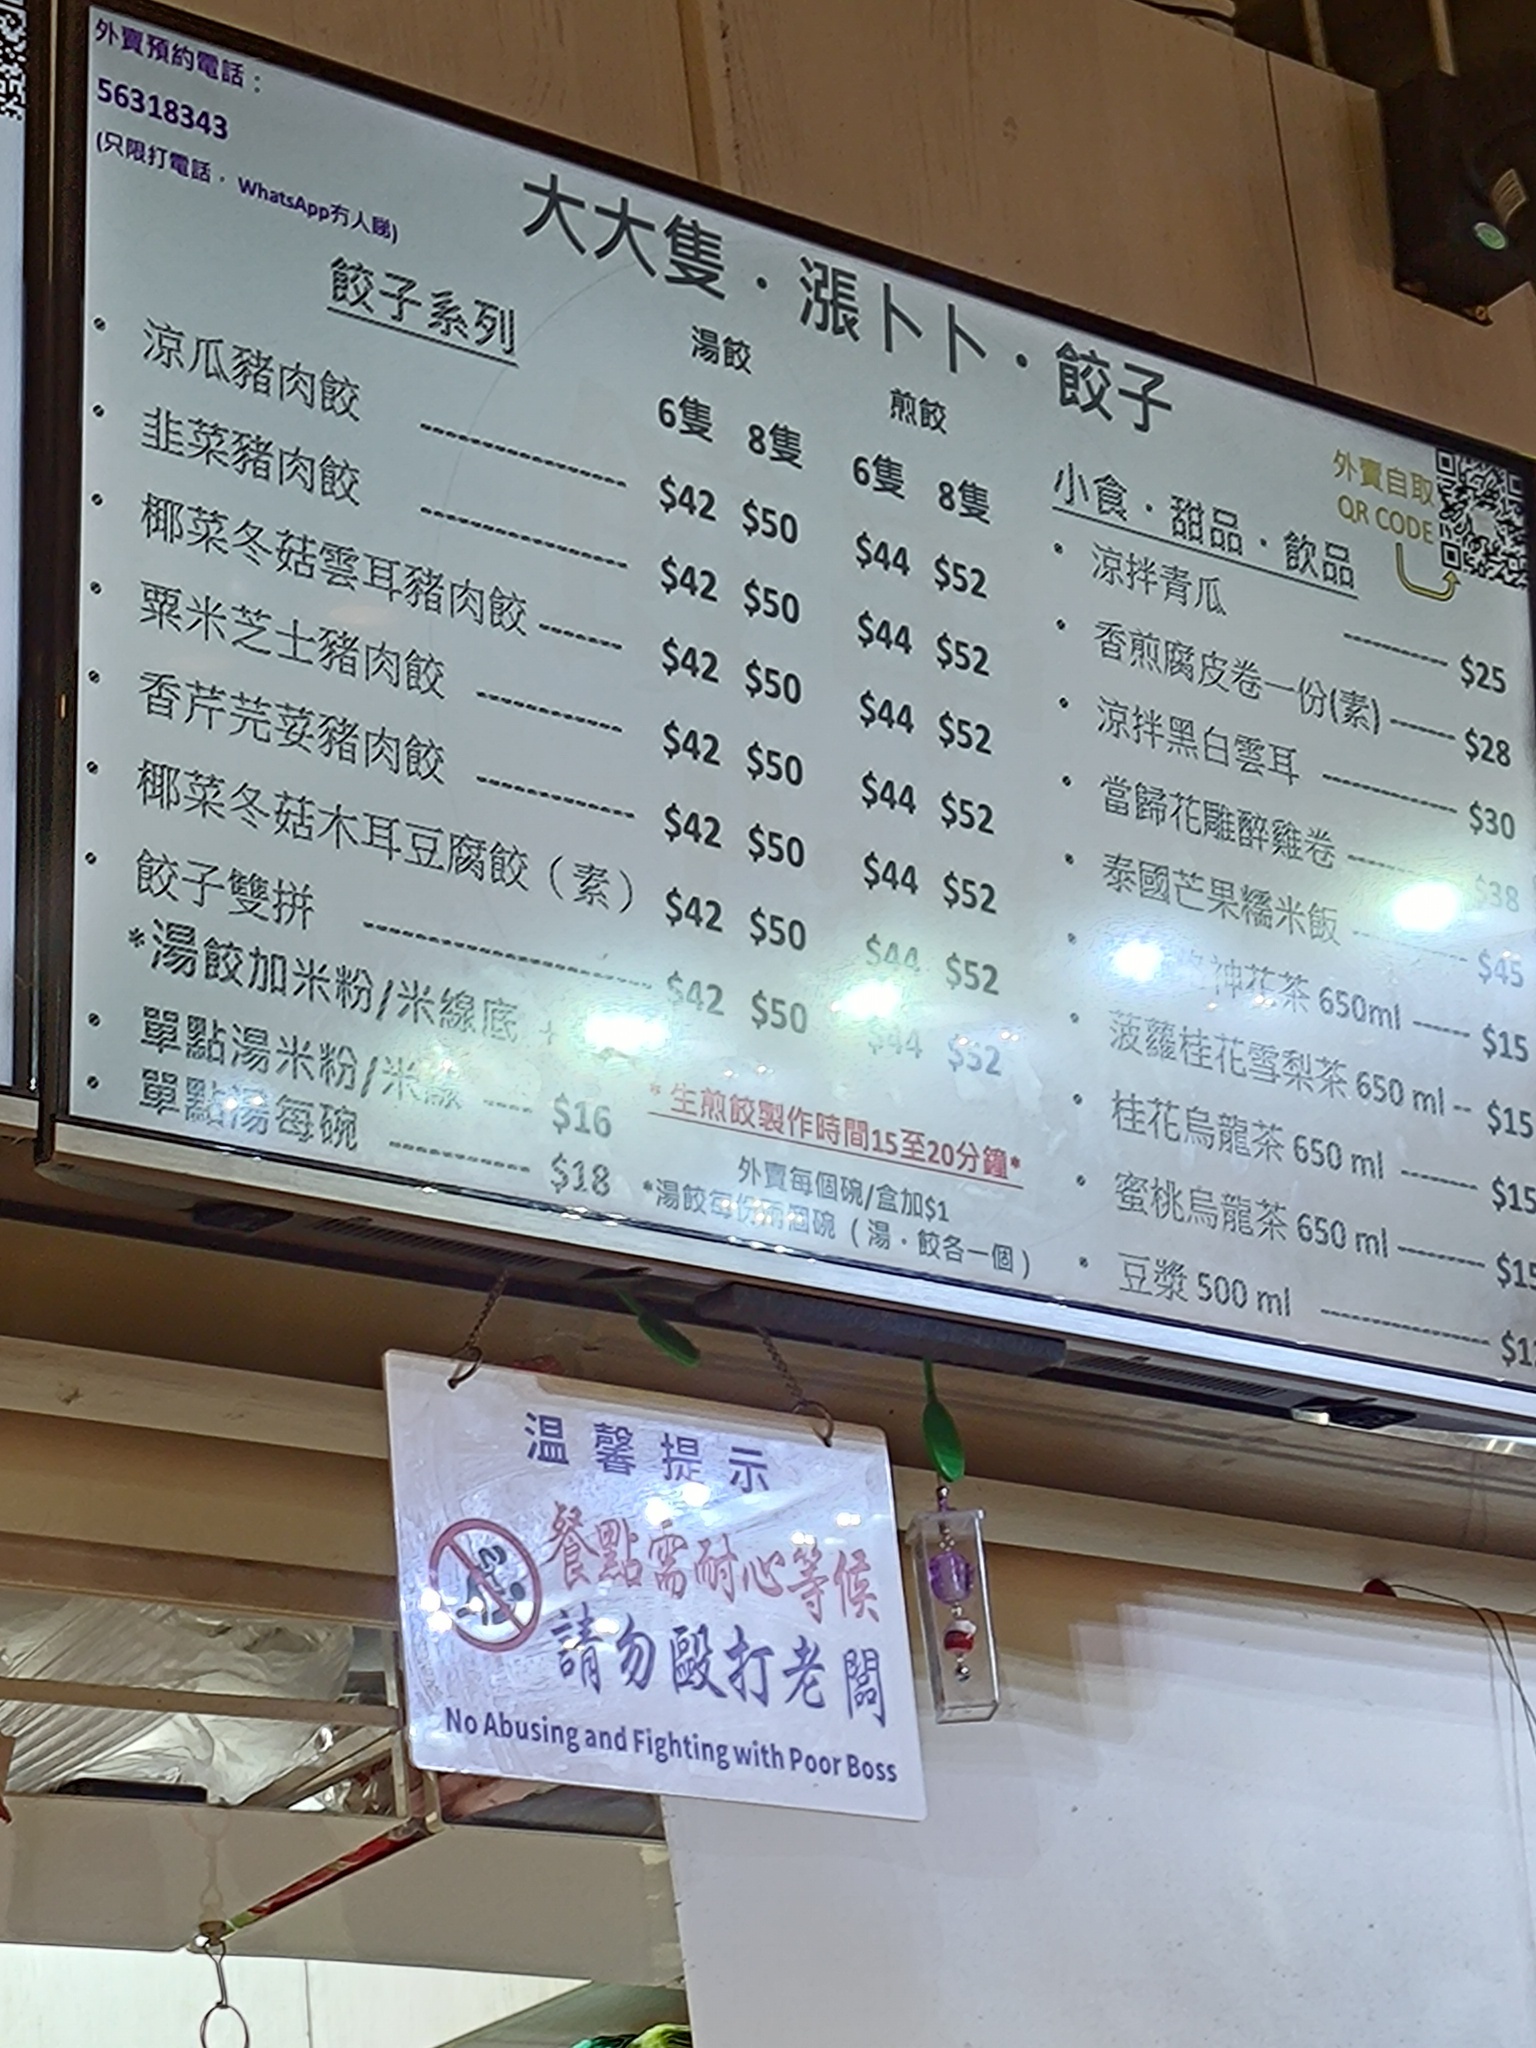 外賣預約電話：
56318343
(只限打電話，WhatsApp冇人睇)
大大隻．漲卜卜．餃子
餃子系列
湯餃 煎餃
6隻 8隻 6隻 8隻
涼瓜豬肉餃 $42 $50 $44 $52
韭菜豬肉餃 $42 $50 $44 $52
椰菜冬菇雲耳豬肉餃 $42 $50 $44 $52
粟米芝士豬肉餃 $42 $50 $44 $52
香芹芫荽豬肉餃 $42 $50 $44 $52
椰菜冬菇木耳豆腐餃（素） $42 $50 $44 $52
餃子雙拼 $42 $50 $44 $52
*湯餃加米粉/米線底 +
單點湯米粉/米線 $16
單點湯每碗 $18
*生煎餃製作時間15至20分鐘*
外賣每個碗/盒加$1
*湯餃每份兩個碗（湯．餃各一個）
小食．甜品．飲品
外賣自取
QR CODE
涼拌青瓜 $25
香煎腐皮卷一份(素) $28
涼拌黑白雲耳 $30
當歸花雕醉雞卷 $38
泰國芒果糯米飯 $45
神花茶 650ml $15
菠蘿桂花雪梨茶 650 ml -- $15
桂花烏龍茶 650 ml $15
蜜桃烏龍茶 650 ml $15
豆漿 500 ml
温馨提示
餐點需耐心等候
請勿毆打老闆
No Abusing and Fighting with Poor Boss